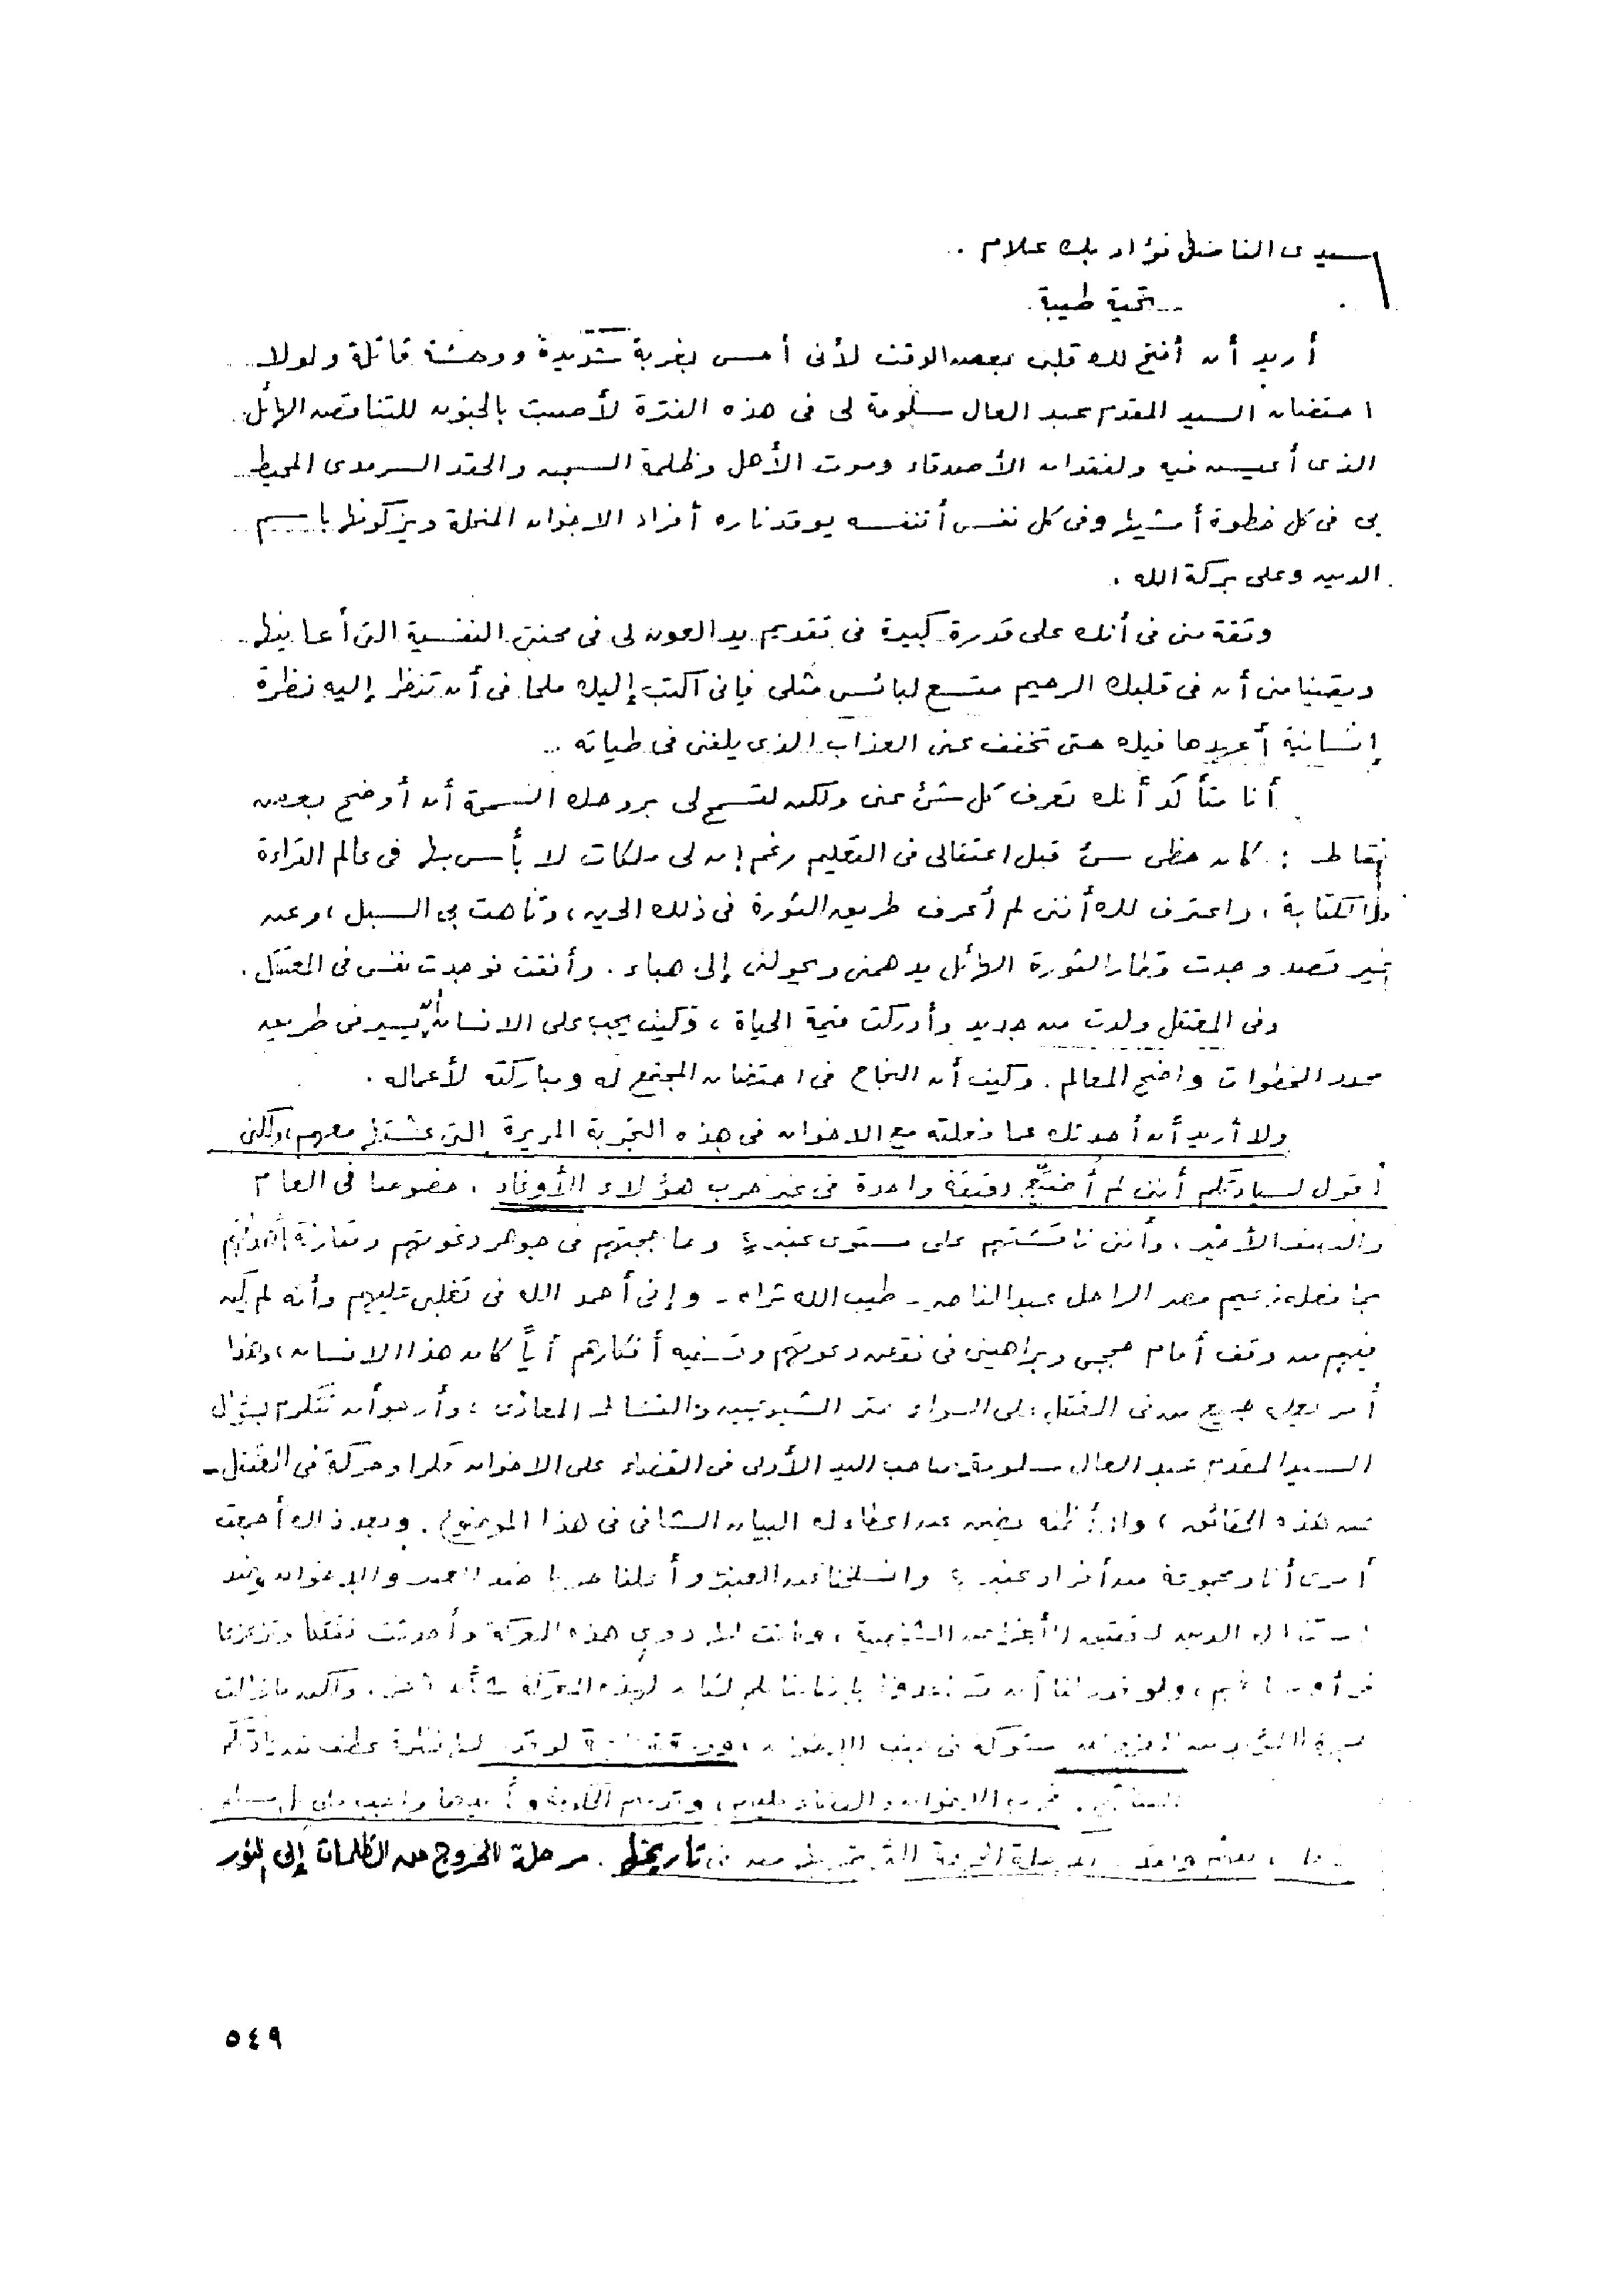 سيدى الفاضل فؤاد بك علام .
تحية طيبة
أريد أن أفتح لك قلبى بعض الوقت لأنى أحس بغربة شديدة ووحشة قاتلة ولولا
احتضان السيد المقدم عبد العال سلومة لى فى هذه الفترة لأصبت بالجنون للتناقض الهائل
الذى أعيش فيه ولفقدان الأصدقاء وموت الأهل وظلمة السجن والحقد السرمدى المحيط
بى فى كل خطوة أمشيها وفى كل نفس أتنفسه يوقد ناره أفراد الاخوان المنحلة ويزكونها باسم
الدين وعلى بركة الله .
وثقة منى فى أنك على قدرة كبيرة فى تقديم يد العون لى فى محنتى النفسية التى أعانيها
ويقينا منى أن فى قلبك الرحيم متسع لبائس مثلى فإنى أكتب إليك ملحا فى أن تنظر إليه نظرة
إنسانية أعهدها فيك حتى تخفف عنى العذاب الذى يلفنى فى طياته ..
أنا متأكد أنك تعرف كل شئ عنى ولكن لتسمح لى بروحك السمحة أن أوضح بعض
نقاط : كان حظى سئ قبل اعتقالى فى التعليم رغم إن لى ملكات لا بأس بها فى عالم القراءة
والكتابة ، واعترف لك أننى لم أعرف طريق الثورة فى ذلك الحين ، وتاهت بى السبل ، وعن
غير قصد وجدت قطار الثورة الهائل يدهمنى ويحولنى إلى هباء . وأفقت فوجدت نفسى فى المعتقل .
وفى المعتقل ولدت من جديد وأدركت قيمة الحياة ، وكيف يجب على الانسان أن يسير فى طريق
محدد الخطوات واضح المعالم . وكيف أن النجاح فى احتضان المجتمع له ومباركته لأعماله .
ولا أريد أن أحدثك عما فعلته مع الاخوان فى هذه التجربة المريرة التى عشتها معهم ، ولكنى
أقول لسيادتكم أننى لم أضيّع دقيقة واحدة فى غير حرب هؤلاء الأوغاد ، خصوصا فى العام
والنصف الأخير ، وأننى ناقشتهم على مستوى عنبر ٤ وحاججتهم فى جوهر دعوتهم ومقارنة
بما فعله زعيم مصر الراحل عبد الناصر - طيب الله ثراه - وإنى أحمد الله فى تغلبى عليهم وأنه لم يكن
فيهم من وقف أمام حججى وبراهينى فى نقض دعوتهم وتسفيه أفكارهم أيًا كان هذا الانسان ، وهذا
أمر يعرفه جميع من فى المعتقل على السواء حتى الشيوعيين والنشاط المعادى ، وأرجو أن تتكرم بسؤال
السيد المقدم عبد العال سلومة - صاحب اليد الأولى فى القضاء على الاخوان فكرا وحركة فى المعتقل -
عن هذه الحقائق ، ولا أظنه يضن عن اعطاءك البيان الشافى فى هذا الموضوع . وبعد ذلك أصبحت
أسرى أنا ومجموعة من أفراد عنبر ٤ وانسلخنا عن العنبر وأعلنا حربا ضد والاخوان وضد
استغلال الدين لتحقيق الأغراض الشخصية ، وكانت لها دوى هذه الحركة وأحدثت
ولو قدر لنا أن لكان لهذه الحركة شأن آخر . ولكن مازالت
شوكة فى جنب الاخوان ، لها نظرة عطف من سيادتكم
حرب الاخوان
مرحلة تاريخها . مرحلة الخروج من الظلمات إلى النور
٥٤٩